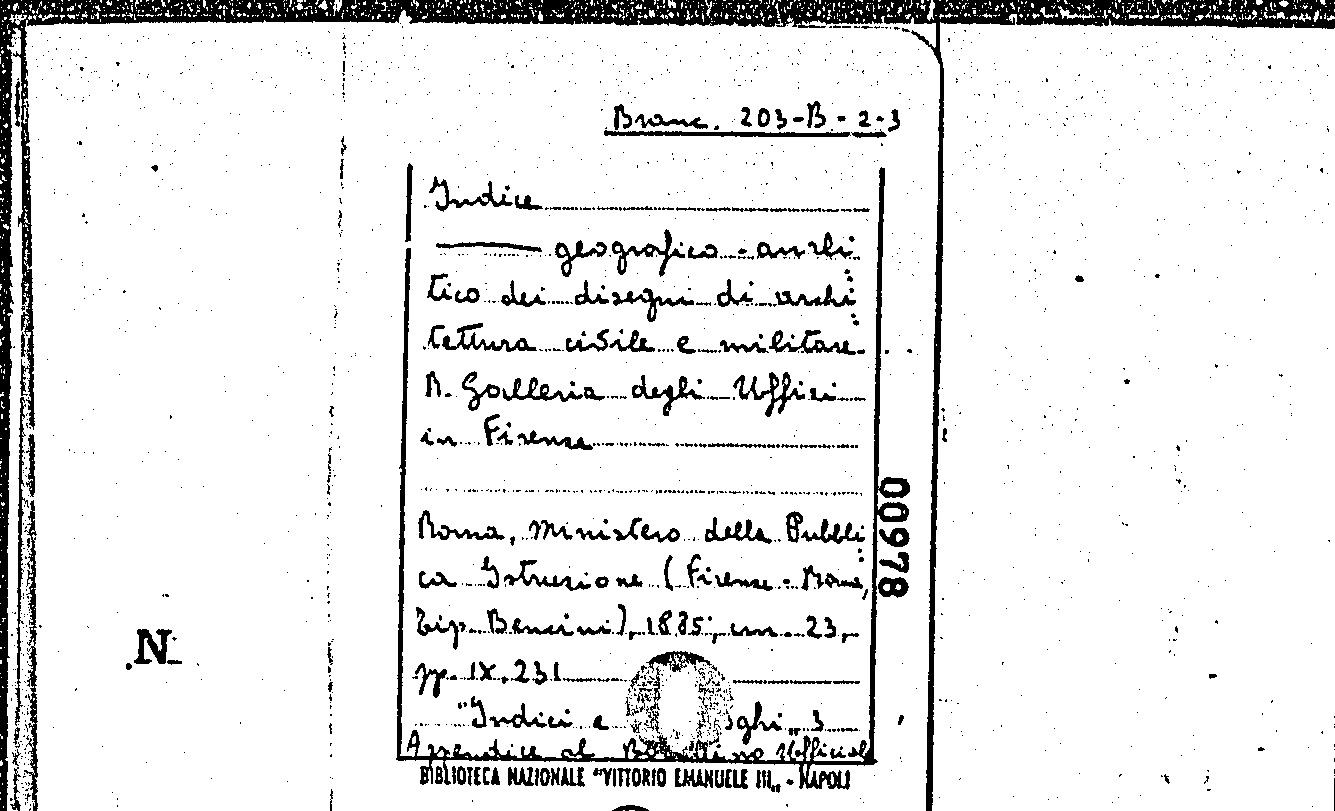 Branc. 203-B-2-3
Indice
geografico-anali
tico dei disegni di archi
tettura civile e militare
R. Galleria degli Uffizi
in Firenze
Roma, Ministero della Pubbli
ca Istruzione (Firenze-Roma,
Tip. Bencini), 1885; cm. 23,
pp. IX, 231
"Indici e 3
Appendice al Bollettino Ufficiale
BIBLIOTECA NAZIONALE "VITTORIO EMANUELE III„ - NAPOLI
00978
N